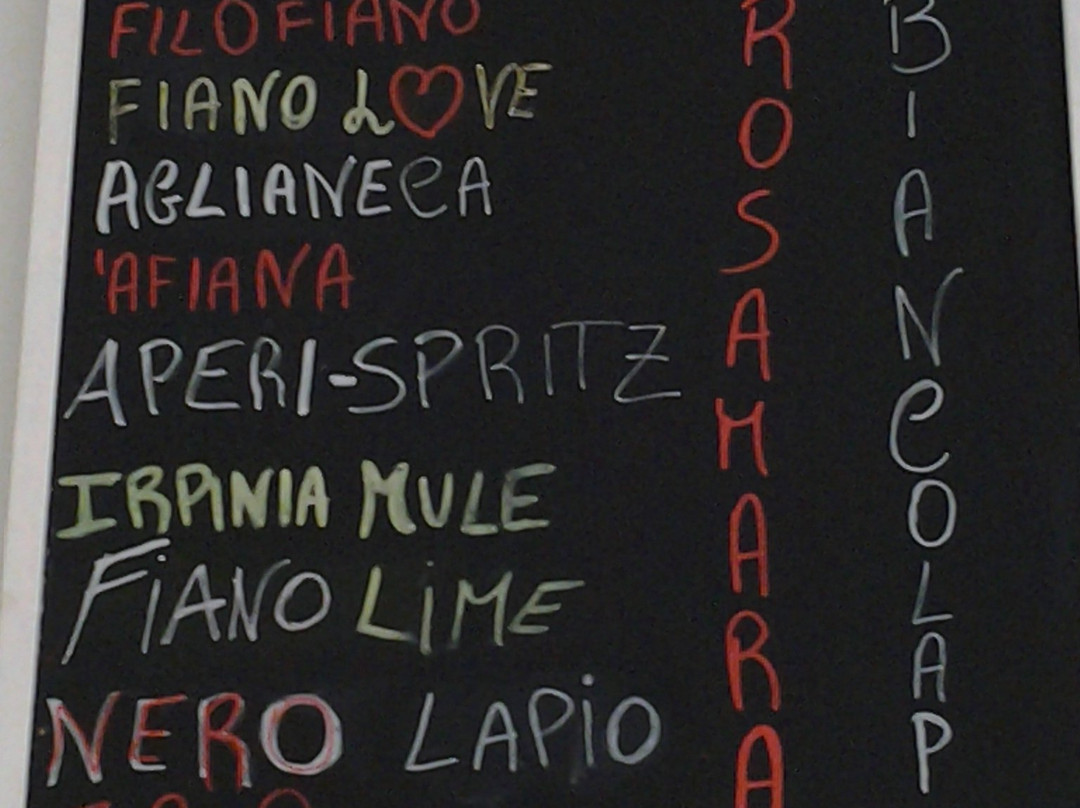 FILOFIANO
FIANO LOVE
AGLIANECA
'AFIANA
APERI-SPRITZ
IRPINIA MULE
FiANO LiME
NERO LAPiO
ROSAMARA
BIANCOLAP